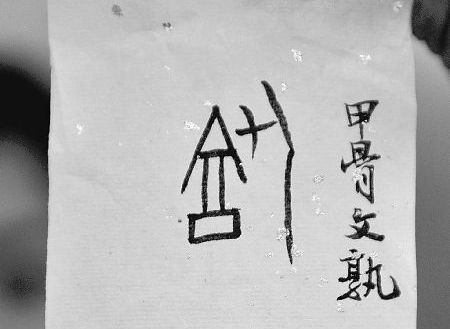 甲骨文孰